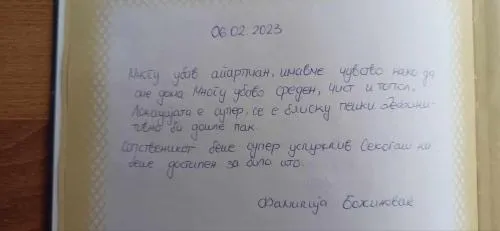 06.02.2023
Многу убав апартман, имавме чувство како да
сме дома Многу убаво среден, чист и топол,
Локацијата е супер, се е блиску пешки дефини-
тивно би дошле пак.
Сопственикот беше супер услужлив Секогаш ни
беше достапен за било што.
Фамилија Божиновски